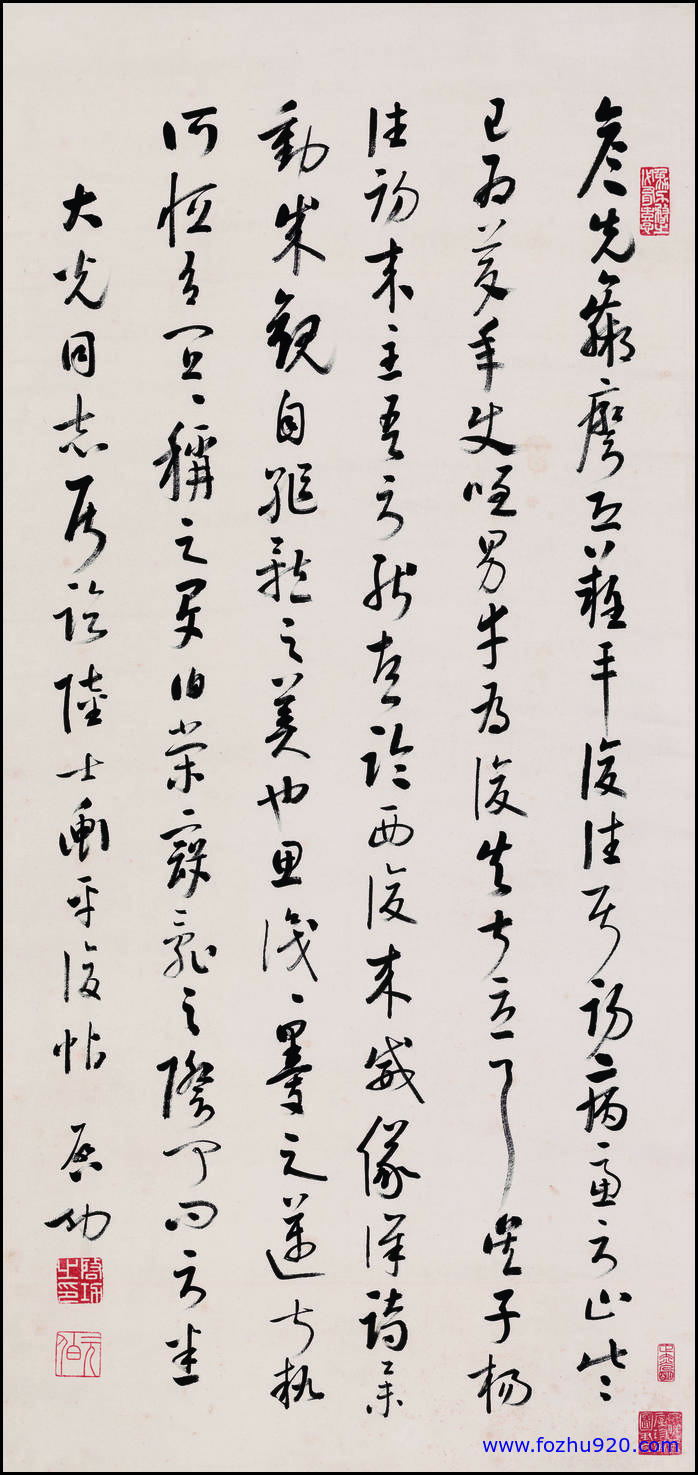 彦先羸瘵恐難平復往屬初病慮不止此〻
已為慶承使唯男幸為復失前憂耳吳子楊
往初來主吾不能盡臨西復來威儀詳跱舉
動成觀自軀體之美也思識〻量之邁前執
所恒有宜〻稱之夏伯榮寇亂之際聞問不悉
大光同志屬臨陸士衡平復帖 啟功
啟功之印
元白
www.fozhu920.com